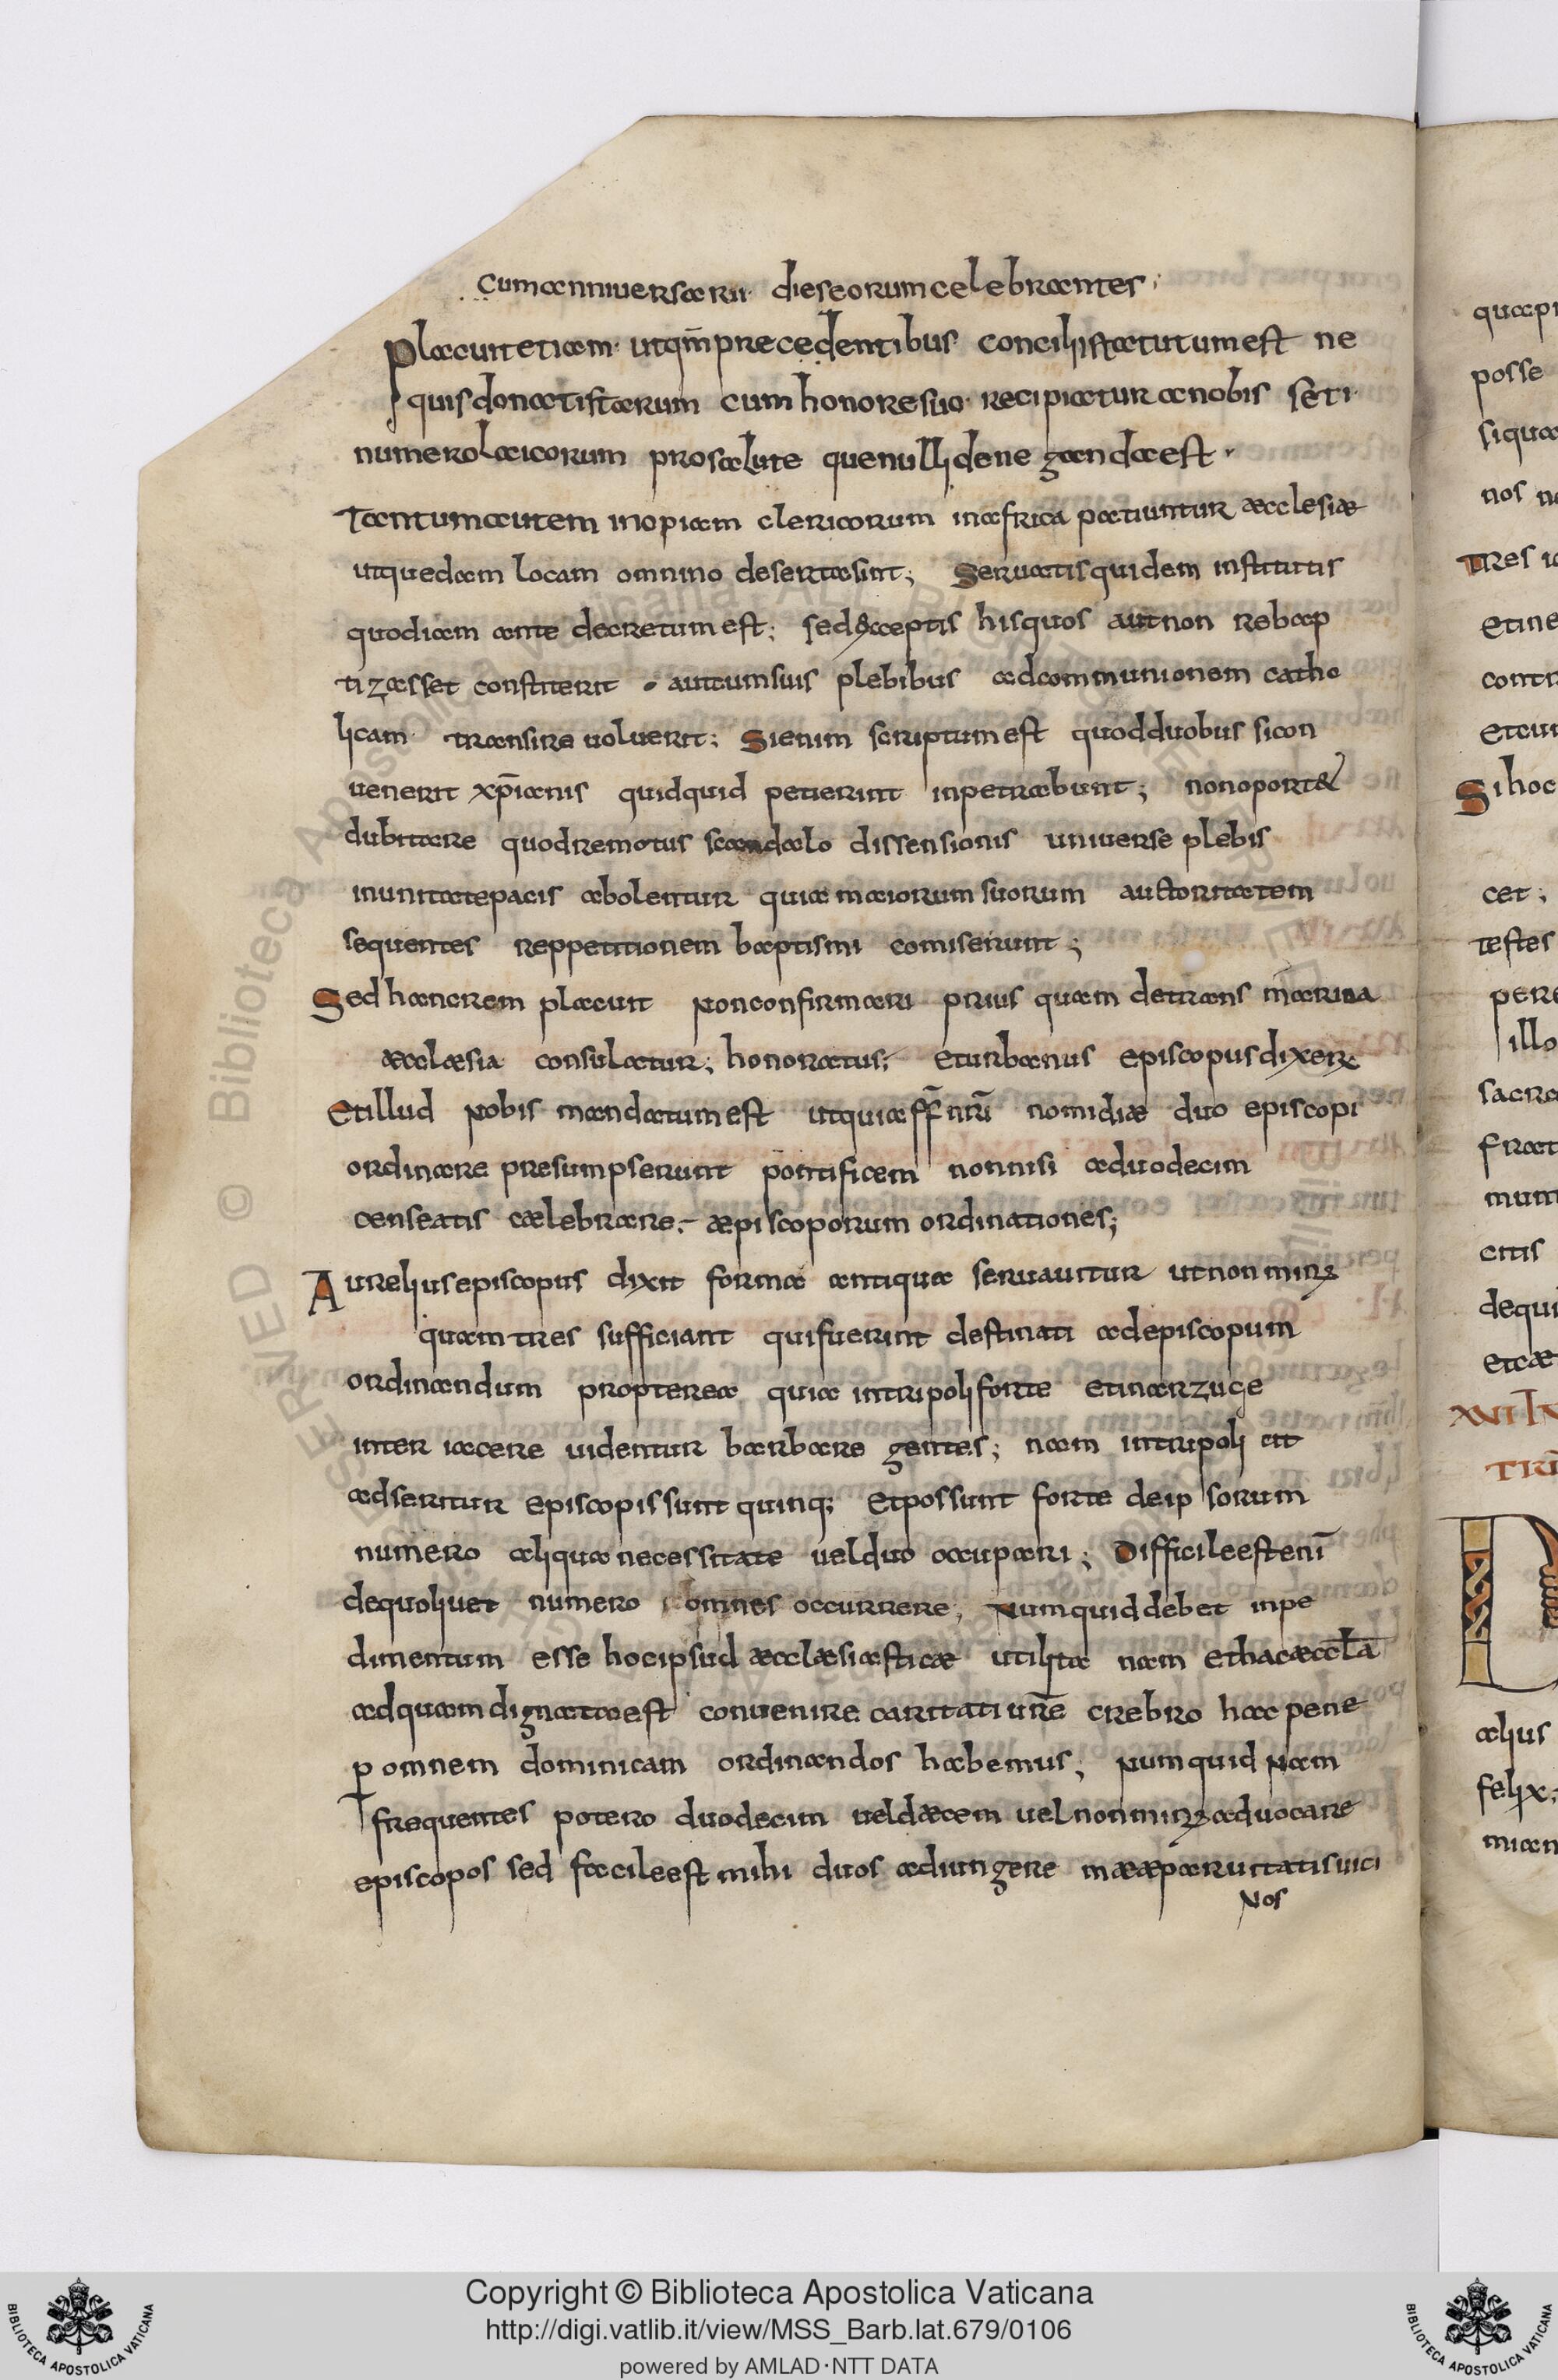 cum anniuersarii dies eorum celebrantes;
Placuit etiam ut qm̄ precedentibus conciliis statutum est ne
quis donatistarum cum honore suo recipiatur a nobis set i
numero laicorum pro salute que nulli deneganda est
Tantum autem inopiam clericorum in africa patiuntur æcclesiæ
ut quedam locam omnino deserta sint; Seruatis quidem institutis
quod iam ante decretum est; sed exceptis his quos aut non rebap
tizasset constiterit aut cum suis plebibus ad communionem catho
licam transire uoluerit; Si enim scriptum est quod duobus si con
uenerit xp̄ianis quidquid petierint inpetrabunt; non oport&
dubitare quod remotus scandalo dissensionis uniuerse plebis
in unitate pacis abolentur quia maiorum suorum auctoritatem
sequentes reppetitionem baptismi comiserunt;
Sed hanc rem placuit non confirmari prius quam de transmarina
æcclæsia consulatur; honoratus; et urbanus episcopus dixer̄
Et illud nobis mandatum est ut quia ff̄ nr̄i nomidiæ duo episcopi
ordinare presumpserunt pontificem non nisi a duodecim
censeatis cælebrare æpiscoporum ordinationes;
Aurelius episcopus dixit forma antiqua seruauitur ut non minꝰ
quam tres sufficiant qui fuerint destinati ad episcopum
ordinandum propterea quia in tripoli forte et in arzuge
inter iacere uidentur barbare gentes; nam in tripoli ut
adseritur episcopis sunt quinq; et possunt forte de ipsorum
numero aliqua necessitate uel duo occupari; Difficile est enī
de quoliuet numero omnes occurrere; Numquid debet inpe
dimentum esse hoc ipsud æcclæsiasticæ utilita nam et hac æccl̄a
ad quam dignata est conuenire caritati ur̄e crebro hac pene
ꝑ omnem dominicam ordinandos habemus; Numquid nam
frequentes potero duodecim uel dæcem uel non minꝰ aduocare
episcopos sed facile est mihi duos adiungere mææ paruitatis uici
Nos
quæpr
posse
siqua
nos
tres
etine
contr
etcu
Si hoc
cet;
testes
pere
illo
sacra
frat
mum
citis
dequi
etcæ
alius
felix;
mian
Copyright © Biblioteca Apostolica Vaticana
http://digi.vatlib.it/view/MSS_Barb.lat.679/0106
powered by AMLAD·NTT DATA
BIBLIOTECA APOSTOLICA VATICANA
BIBLIOTECA APOSTOLICA VATICANA